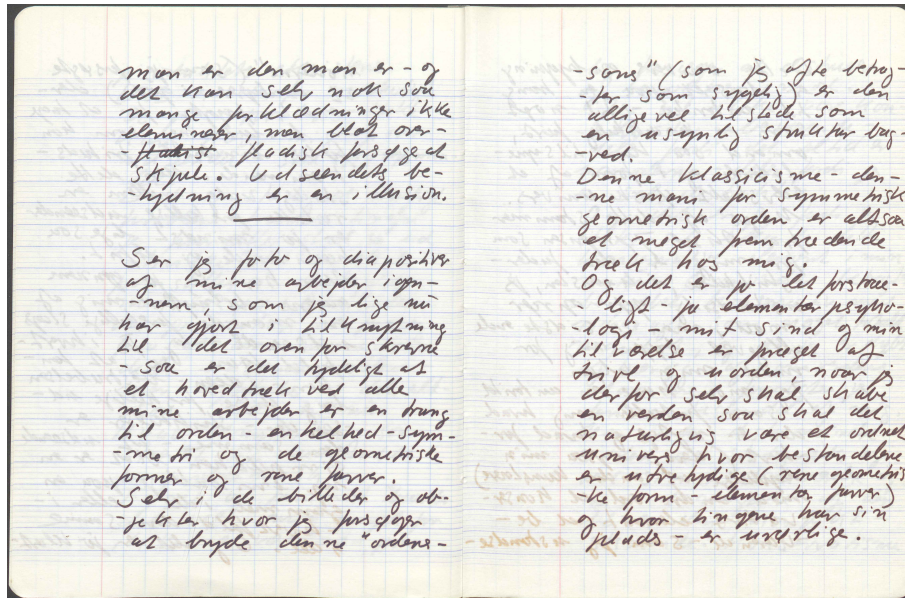 man er den man er - og
det kan selv nok saa
mange forklædninger ikke
eleminerer, men blot over-
-fladisk forsøge at
skjule. Udseendets be-
-tydning er en illusion.
Ser jeg foto og diapositiver
af mine arbejder igen-
-nem, som jeg lige nu
har gjort i tilknytning
til det ovenfor skrevne
- saa er det tydeligt at
et hovedtræk ved alle
mine arbejder er en trang
til orden - enkelhed - sym-
-metri og de geometriske
former og rene farver.
Selv i de billeder og ob-
-jekter hvor jeg forsøger
at bryde denne "ordens-
-sans" (som jeg ofte betrag-
-ter som sygelig) er den
alligevel tilstede som
en usynlig struktur bag-
-ved.
Denne klassicisme - den-
-ne mani for symmetrisk
geometrisk orden er altsaa
et meget fremtrædende
træk hos mig.
Og det er jo let forstaae-
-ligt - jo elementær psyko-
-logi - mit sind og min
tilværelse er præget af
tvivl og uorden, naar jeg
derfor selv skal skabe
en verden saa skal det
naturligvis være et ordnet
univers hvor bestanddelene
er utvetydige (rene geometris-
-ke form - elementer farver)
og hvor tingene har sin
plads - er urørlige.